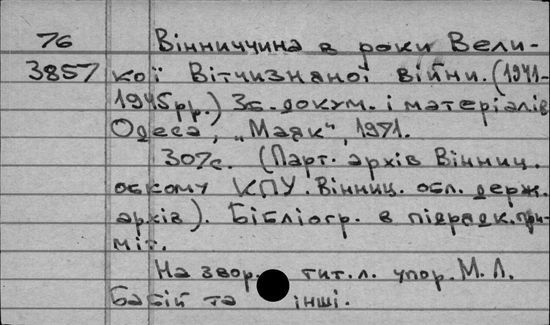 76 Вінниччина в роки Вели-
3857 кої Вітчизняної війни. (1941-
1945рр.) Зб. докум. і матеріалів
Одеса, „Маяк", 1971.
307с. (Парт. архів Вінниц.
обкому КПУ. Вінниц. обл. держ.
архів). Бібліогр. в підрядк. при-
міт.
На звор. тит. л. упор. М. Л.
Бабій та інші.